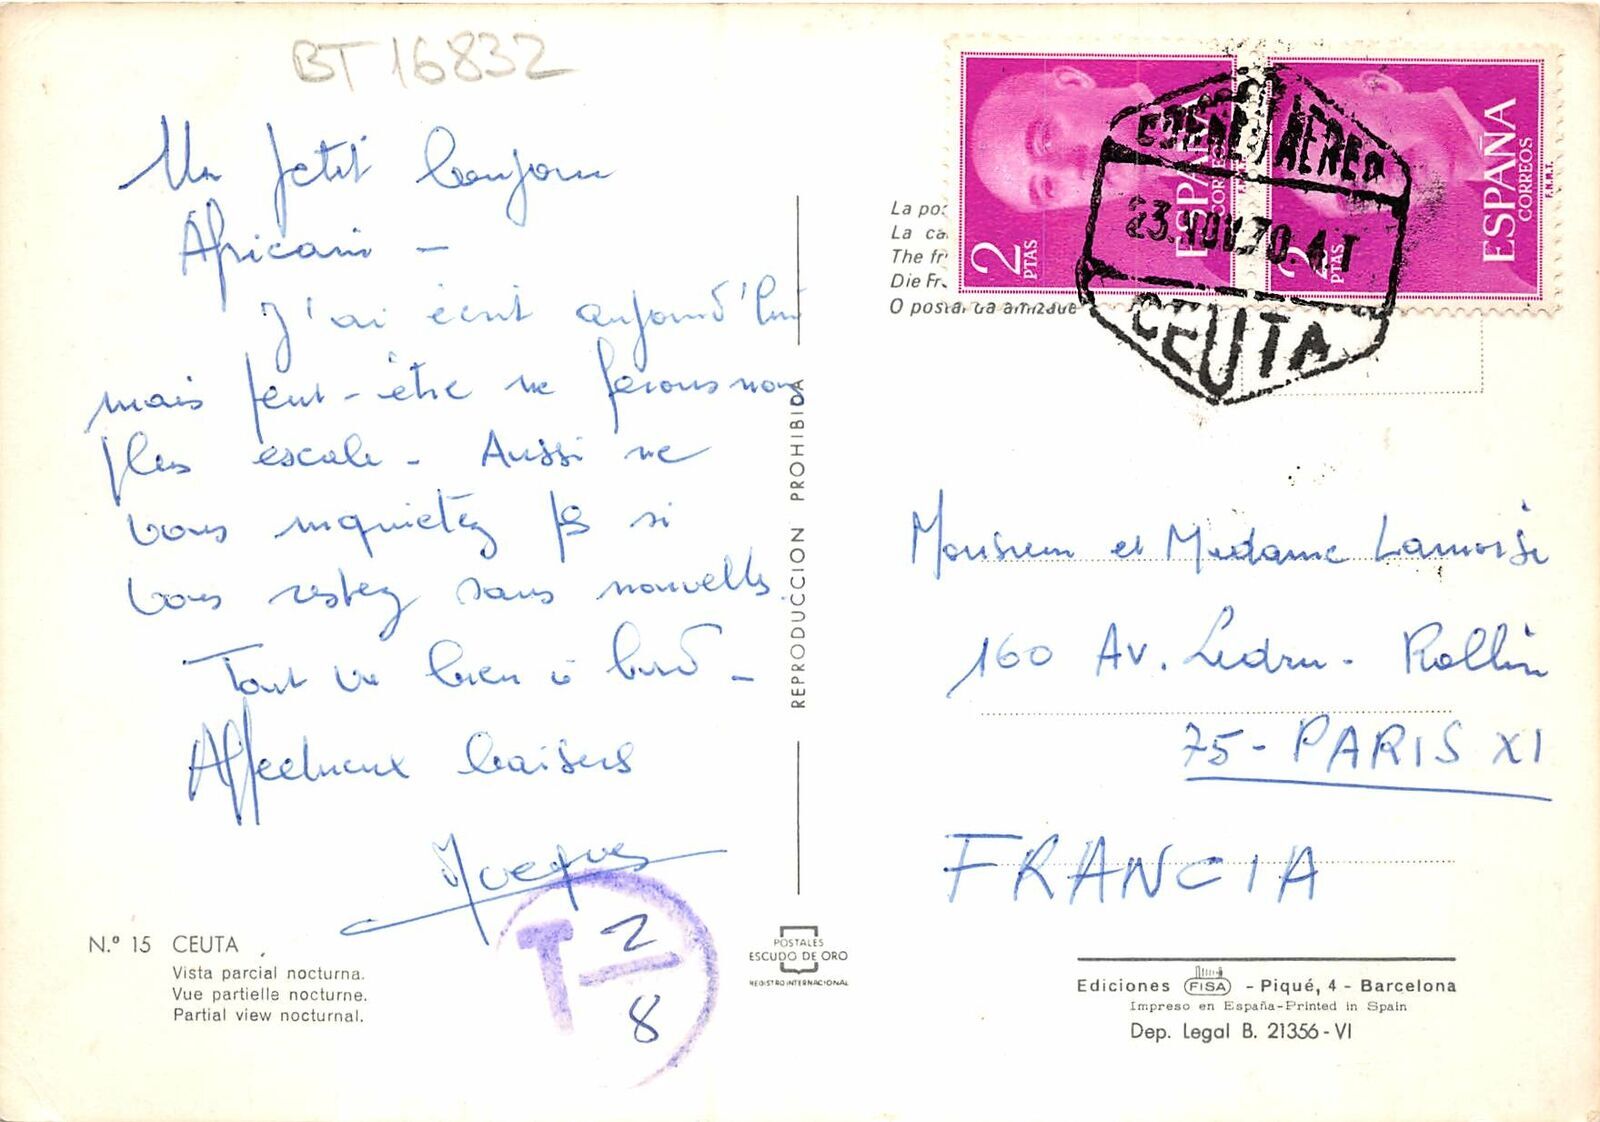 BT 16832
Un petit bonjour
Africain -
J'ai écrit aujourd'hui
mais peut-être ne ferons nous
plus escale - Aussi ne
vous inquietez pas si
vous restez sans nouvelles.
Tout va bien à bord -
Affectueux baisers
Jacques
T 2/8
N.º 15 CEUTA
Vista parcial nocturna.
Vue partielle nocturne.
Partial view nocturnal.
REPRODUCCION PROHIBIDA
POSTALES
ESCUDO DE ORO
REGISTRO INTERNACIONAL
La pos
La ca
The fr
Die Fr
O postal da amizade
2 PTAS
ESPAÑA
CORREOS
2 PTAS
ESPAÑA
CORREOS
F.N.M.T.
CORREO AEREO
23.NOV.70.4.T
CEUTA
Monsieur et Madame Lamoise
160 Av. Ledru-Rollin
75-PARIS XI
FRANCIA
Ediciones FISA - Piqué, 4 - Barcelona
Impreso en España-Printed in Spain
Dep. Legal B. 21356-VI